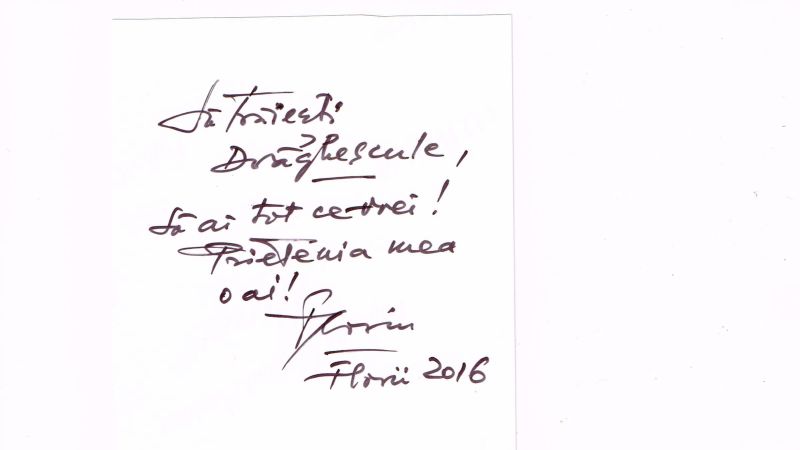 Să trăiești
Drăghescule,
Să ai tot ce vrei!
Prietenia mea
o ai!
Florin
Florii 2016